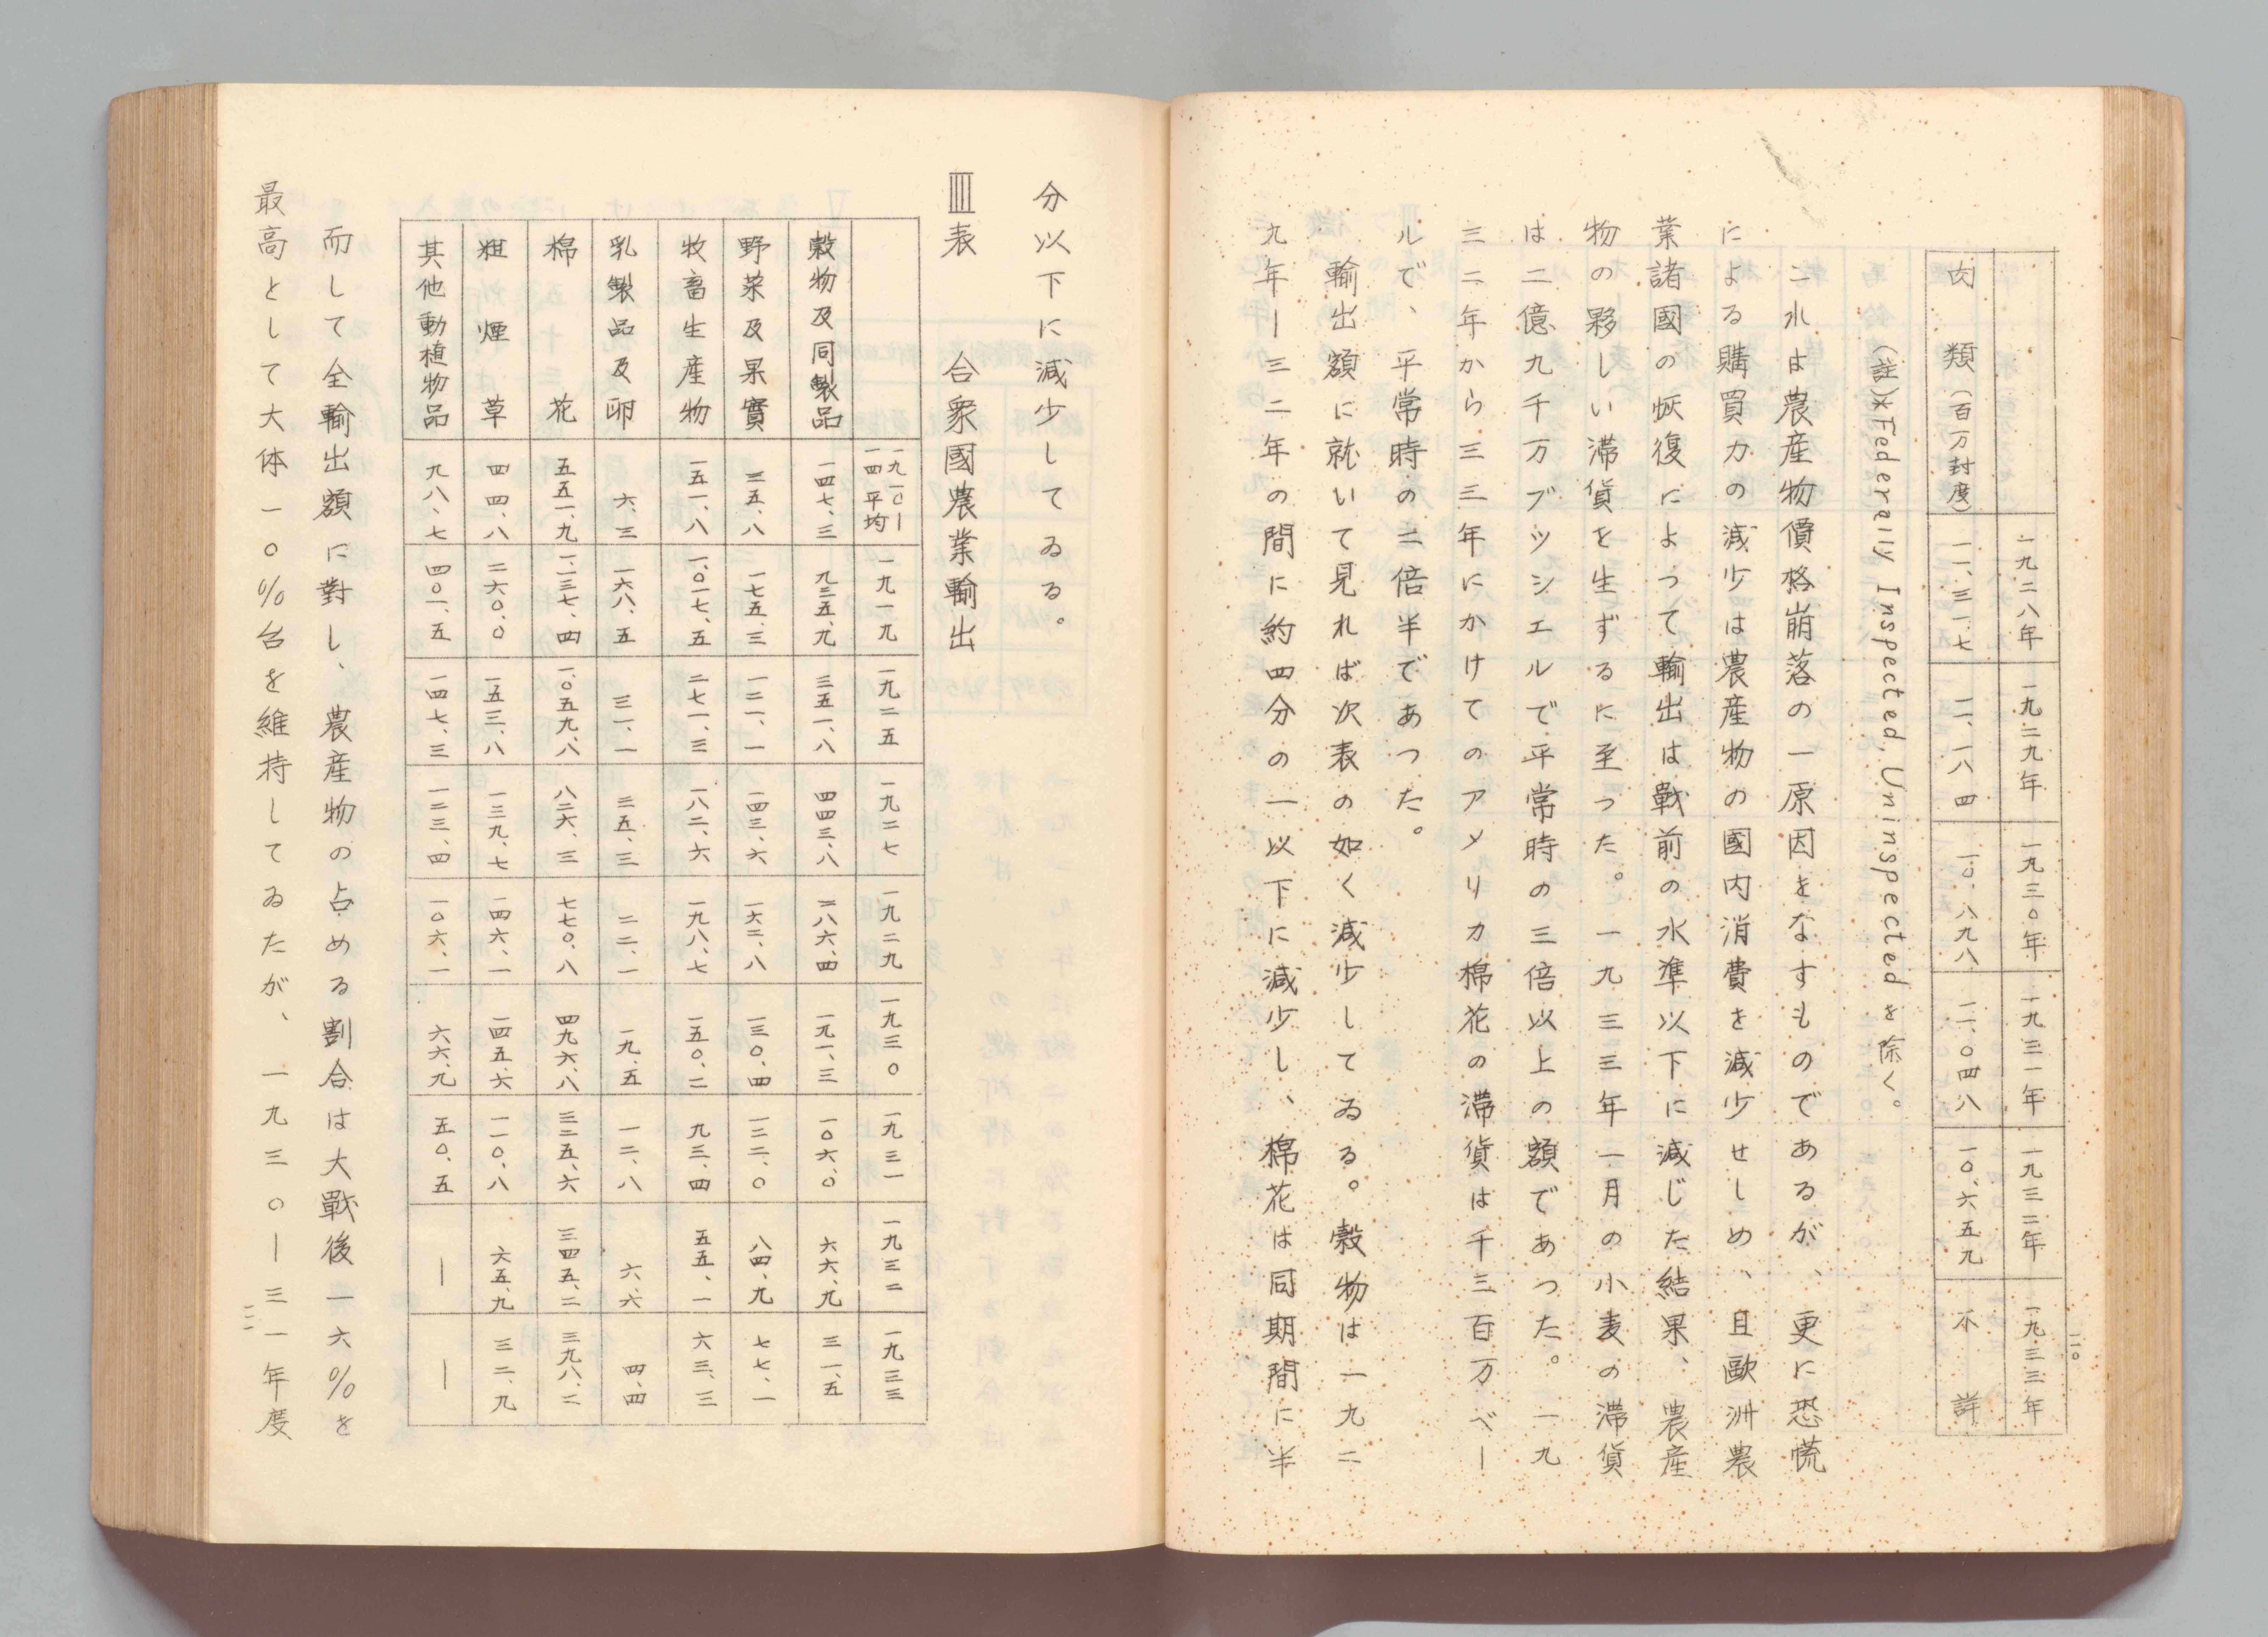 二〇
一九二八年 一九二九年 一九三〇年 一九三一年 一九三二年 一九三三年
肉類(百万封度) 一一、三一七 一一、一八四 一〇、八九八 一一、〇四八 一〇、六五九 不詳
(註)*Federally Inspected, Uninspected を除く。
これは農産物價格崩落の一原因をなすものであるが、更に恐慌
による購買力の減少は農産物の國内消費を減少せしめ、且歐洲農
業諸國の恢復によつて輸出は戰前の水準以下に減じた結果、農産
物の夥しい滞貨を生ずるに至つた。一九三三年一月の小麦の滞貨
は二億九千万ブツシエルで平常時の三倍以上の額であつた。一九
三二年から三三年にかけてのアメリカ棉花の滞貨は千三百万ベー
ルで、平常時の二倍半であつた。
輸出額に就いて見れば次表の如く減少してゐる。穀物は一九二
九年ー三二年の間に約四分の一以下に減少し、棉花は同期間に半
分以下に減少してゐる。
Ⅲ表 合衆國農業輸出
一九一〇ー一四平均 一九一九 一九二五 一九二七 一九二九 一九三〇 一九三一 一九三二 一九三三
穀物及同製品 一四七、三 九三五、九 三五一、八 四四三、八 二八六、四 一九一、三 一〇六、〇 六六、九 三一、五
野菜及果實 三五、八 一七五、三 一二一、一 一四三、六 一六二、八 一三〇、四 一二二、〇 八四、九 七七、一
牧畜生産物 一五一、八 一、〇一七、五 二七一、三 一八二、六 一九八、七 一五〇、二 九三、四 五五、一 六三、三
乳製品及卵 六、三 一六八、五 三一、一 三五、三 二二、一 一九、五 一二、八 六、六 四、四
棉花 五五一、九 一、一三七、四 一、〇五九、八 八二六、三 七七〇、八 四九六、八 三二五、六 三四五、二 三九八、二
粗煙草 四四、八 二六〇、〇 一五三、八 一三九、七 一四六、一 一四五、六 一一〇、八 六五、九 三二、九
其他動植物品 九八、七 四〇一、五 一四七、三 一三三、四 一〇六、一 六六、九 五〇、五 ー ー
而して全輸出額に對し、農産物の占める割合は大戰後一六%を
最高として大体一〇%台を維持してゐたが、一九三〇ー三一年度
二一